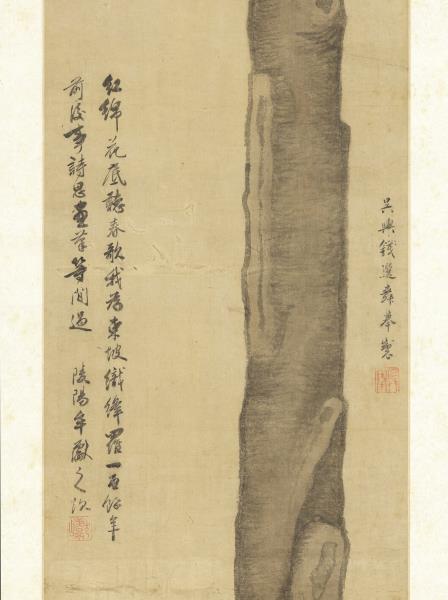 吳興錢選舜舉製
紅綿花底聽春歌我為東坡織絳羅一百餘年
前後事詩思畫筆等閒過 陵陽牟巘之